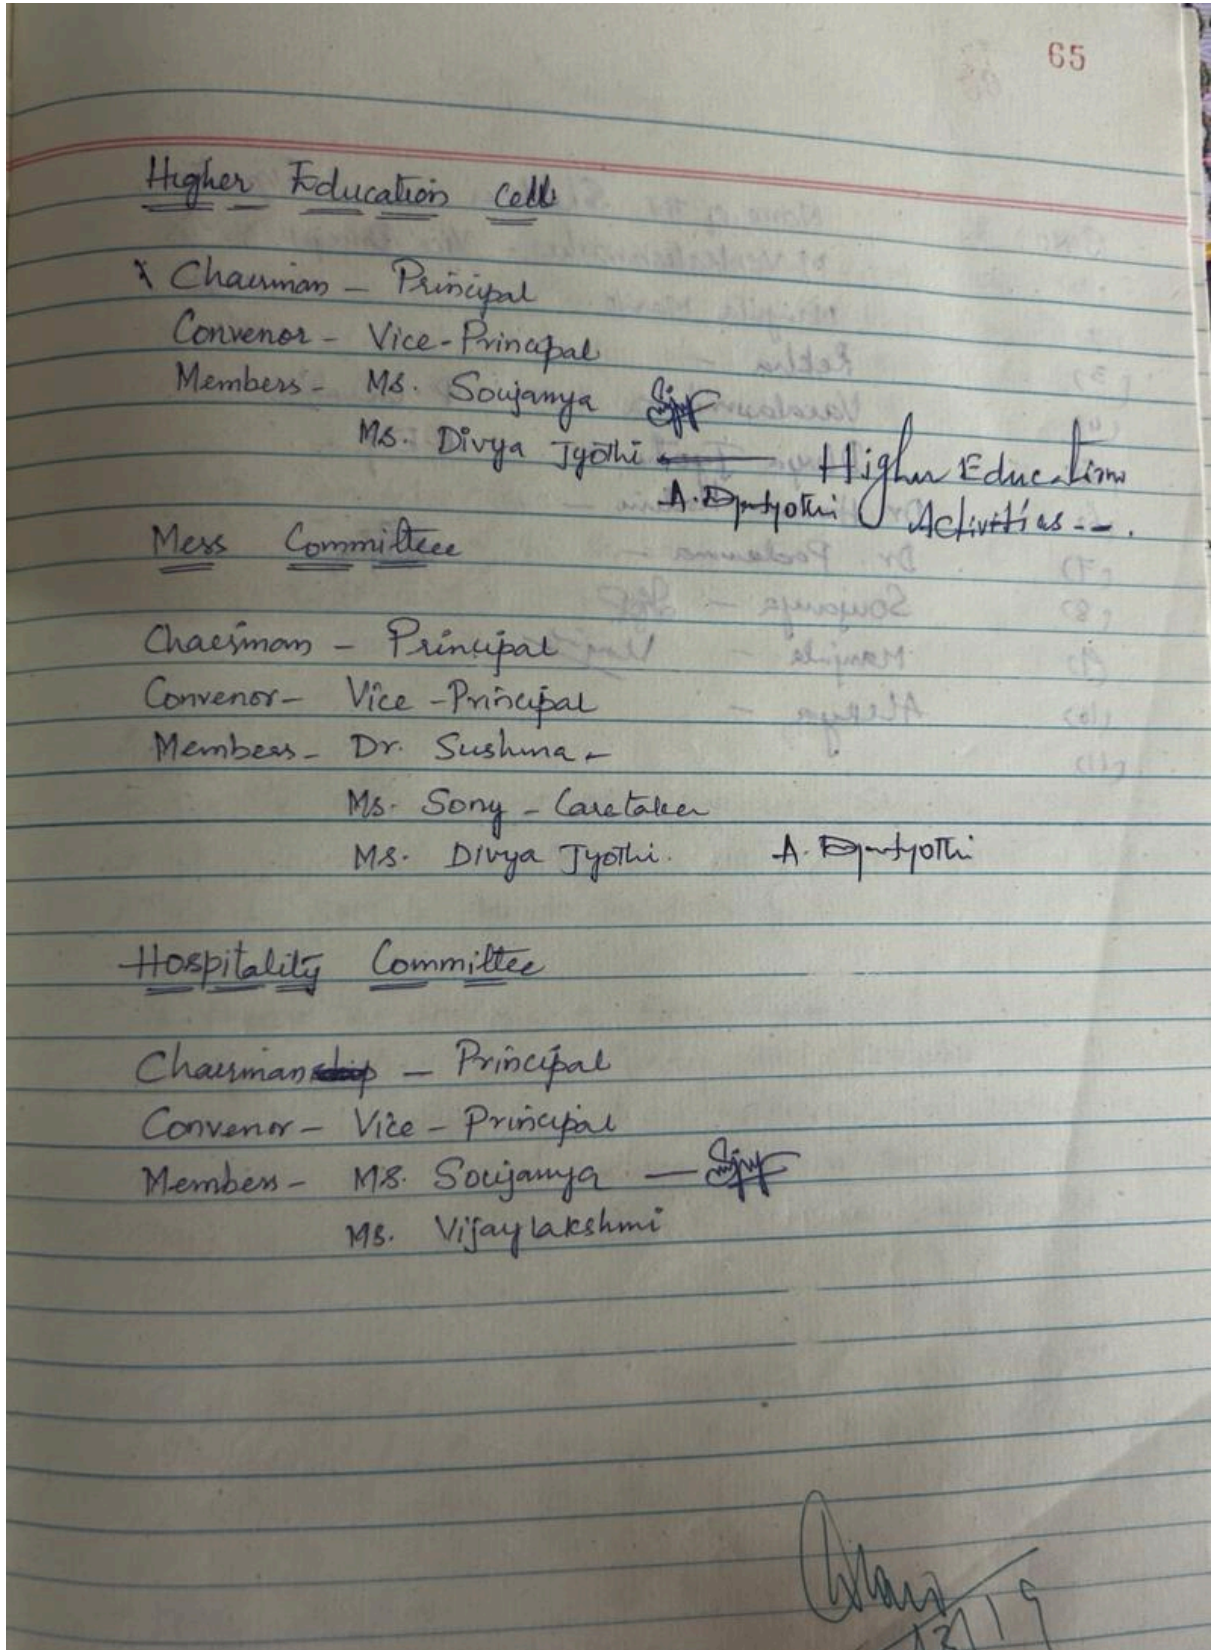 65
Higher Education Cell
Chairman - Principal
Convenor - Vice-Principal
Members - Ms. Soujanya
Ms. Divya Jyothi — Higher Education
A. Divyajyothi Activities --.
Mess Committee
Chairman - Principal
Convenor - Vice-Principal
Members - Dr. Sushma -
Ms. Sony - Caretaker
Ms. Divya Jyothi. A. Divyajyothi
Hospitality Committee
Chairman - Principal
Convenor - Vice-Principal
Members - Ms. Soujanya —
Ms. Vijaylakshmi